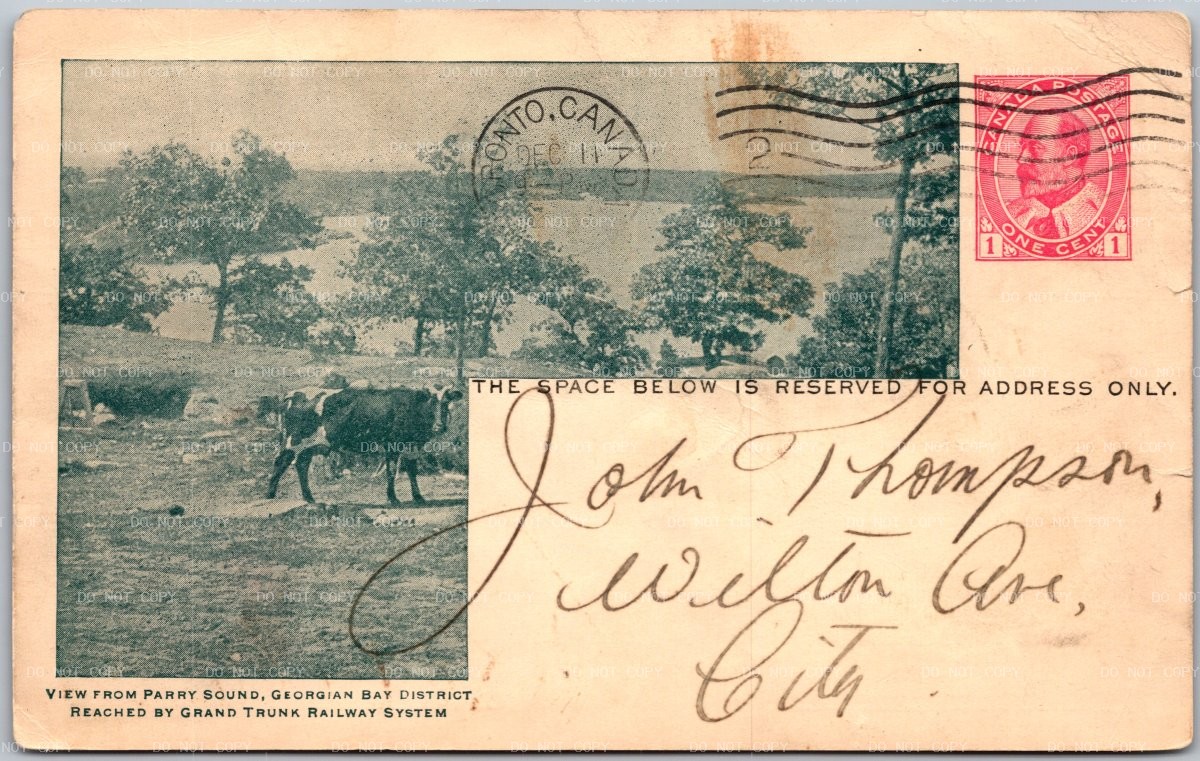 RONTO, CANAD
DEC 11
2
CANADA POSTAGE
1 ONE CENT 1
THE SPACE BELOW IS RESERVED FOR ADDRESS ONLY.
John Thompson,
Wilton Ave,
City.
VIEW FROM PARRY SOUND, GEORGIAN BAY DISTRICT
REACHED BY GRAND TRUNK RAILWAY SYSTEM
DO NOT COPY